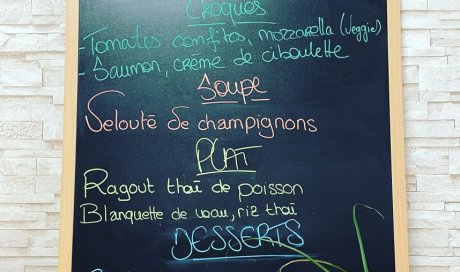 Croques
- Tomates confites, mozzarella (veggie)
- Saumon, crème de ciboulette
Soupe
Velouté de champignons
PLAT
Ragout thaï de poisson
Blanquette de veau, riz thaï
DESSERTS